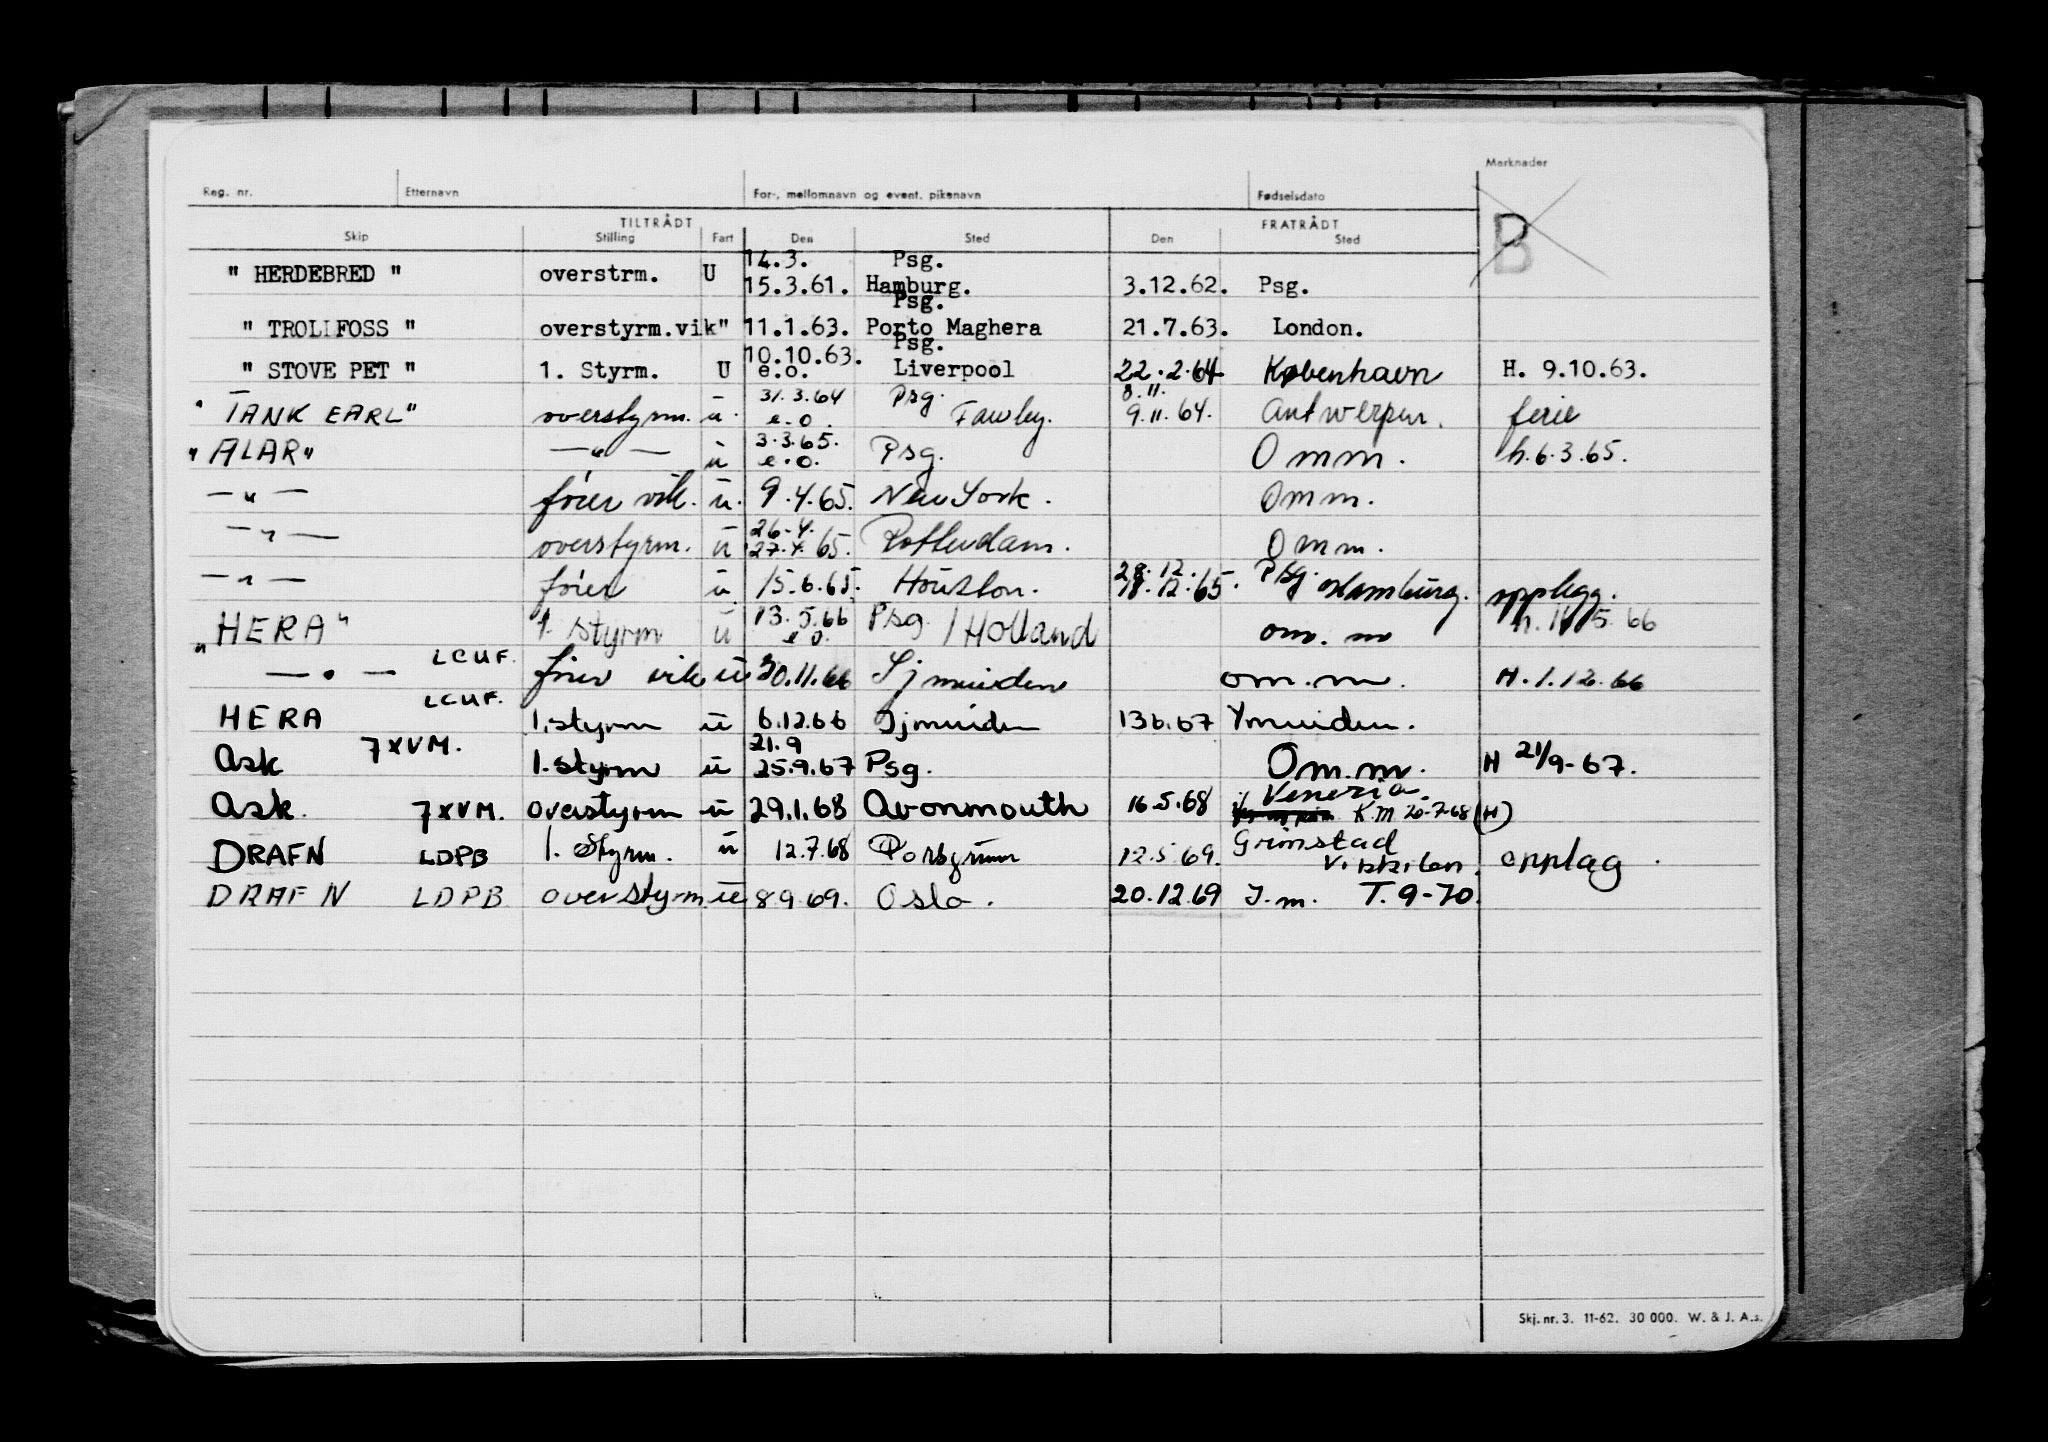 Merknader
Reg. nr. Etternavn For-, mellomnavn og event. pikenavn Fødselsdato
B
TILTRÅDT FRATRÅDT
Skip Stilling Fart Den Sted Den Sted
14.3. Psg.
" HERDEBRED " overstrm. U 15.3.61. Hamburg. 3.12.62. Psg.
Psg.
" TROLLFOSS " overstyrm.vik" 11.1.63. Porto Maghera 21.7.63. London.
10.10.63. Psg.
" STOVE PET " 1. Styrm. U e.o. Liverpool 22.2.64 København H. 9.10.63.
31.3.64 Psg. 8.11.
"TANK EARL" overstyrm. u. e.o. Fawley. 9.11.64. Antwerpen. ferie
3.3.65.
"ALAR" —"— u e.o. Psg. Omm. h.6.3.65.
—"— fører vik. u. 9.4.65. New York. Omm.
26.4.
—"— overstyrm. u 27.4.65. Rotterdam. Omm.
28.12. Psg.
—"— fører u. 15.6.65. Houston. 18.12.65. Hamburg. opplegg.
13.5.66 Psg.
"HERA" 1. styrm u e.o. /Holland om.m h. 11/5.66
—"— LCUF. fører vik u 30.11.66 Ijmuiden om.m. H.1.12.66
HERA LCUF. 1.styrm u 6.12.66 Ijmuiden 13 6.67 Ymuiden.
21.9
Ask 7XVM. 1.styrm u 25.9.67 Psg. Om.m. H 21/9-67.
Venezia
Ask. 7XVM. overstyrm u 29.1.68 Avonmouth 16.5.68 K.M 20-7-68 (H)
Grimstad
DRAFN LDPB 1. Styrm. u 12.7.68 Porsgrunn 12.5.69. Vikkilen. opplag.
DRAFN LDPB overstyrm. u 8 9 69. Oslo. 20.12.69 I.m. T.9-70.
Skj. nr. 3. 11-62. 30 000. W. & J. A.s.